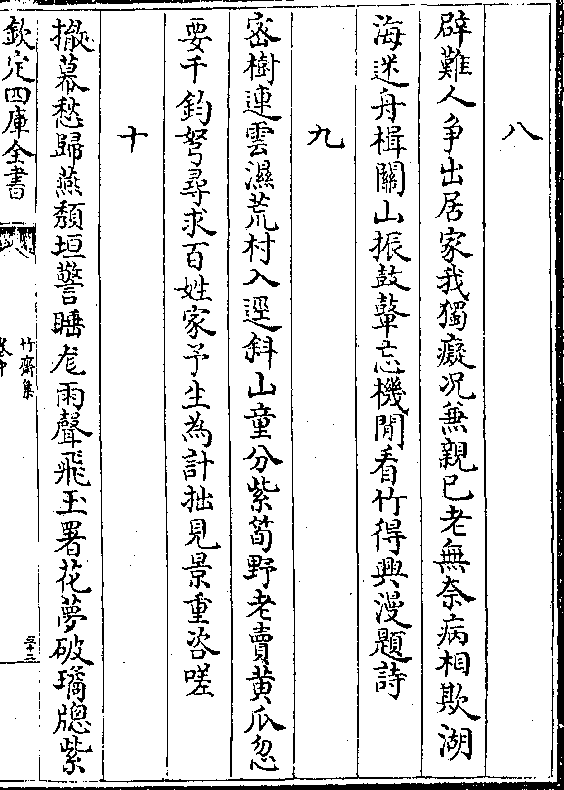 八
辟難人爭出居家我獨癡况兼親已老無奈病相欺湖
海迷舟楫關山振鼓鼙忘機閒看竹得興漫題詩
九
宻樹連雲濕荒村入逕斜山童分紫筍野老賣黄瓜忽
要千鈞弩尋求百姓家予生為計拙見景重咨嗟
十
撥幕愁歸燕頽垣警睡尨雨聲飛玉署花夢破璚牕紫
欽定四庫全書
竹齋集
卷中
三十三